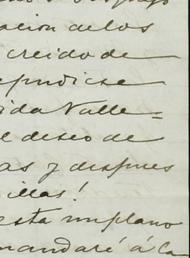 acion de los
creido de
epudiese
ida Valle=
l deseo de
as y despues
illas!
esta un plano
mandaré á la